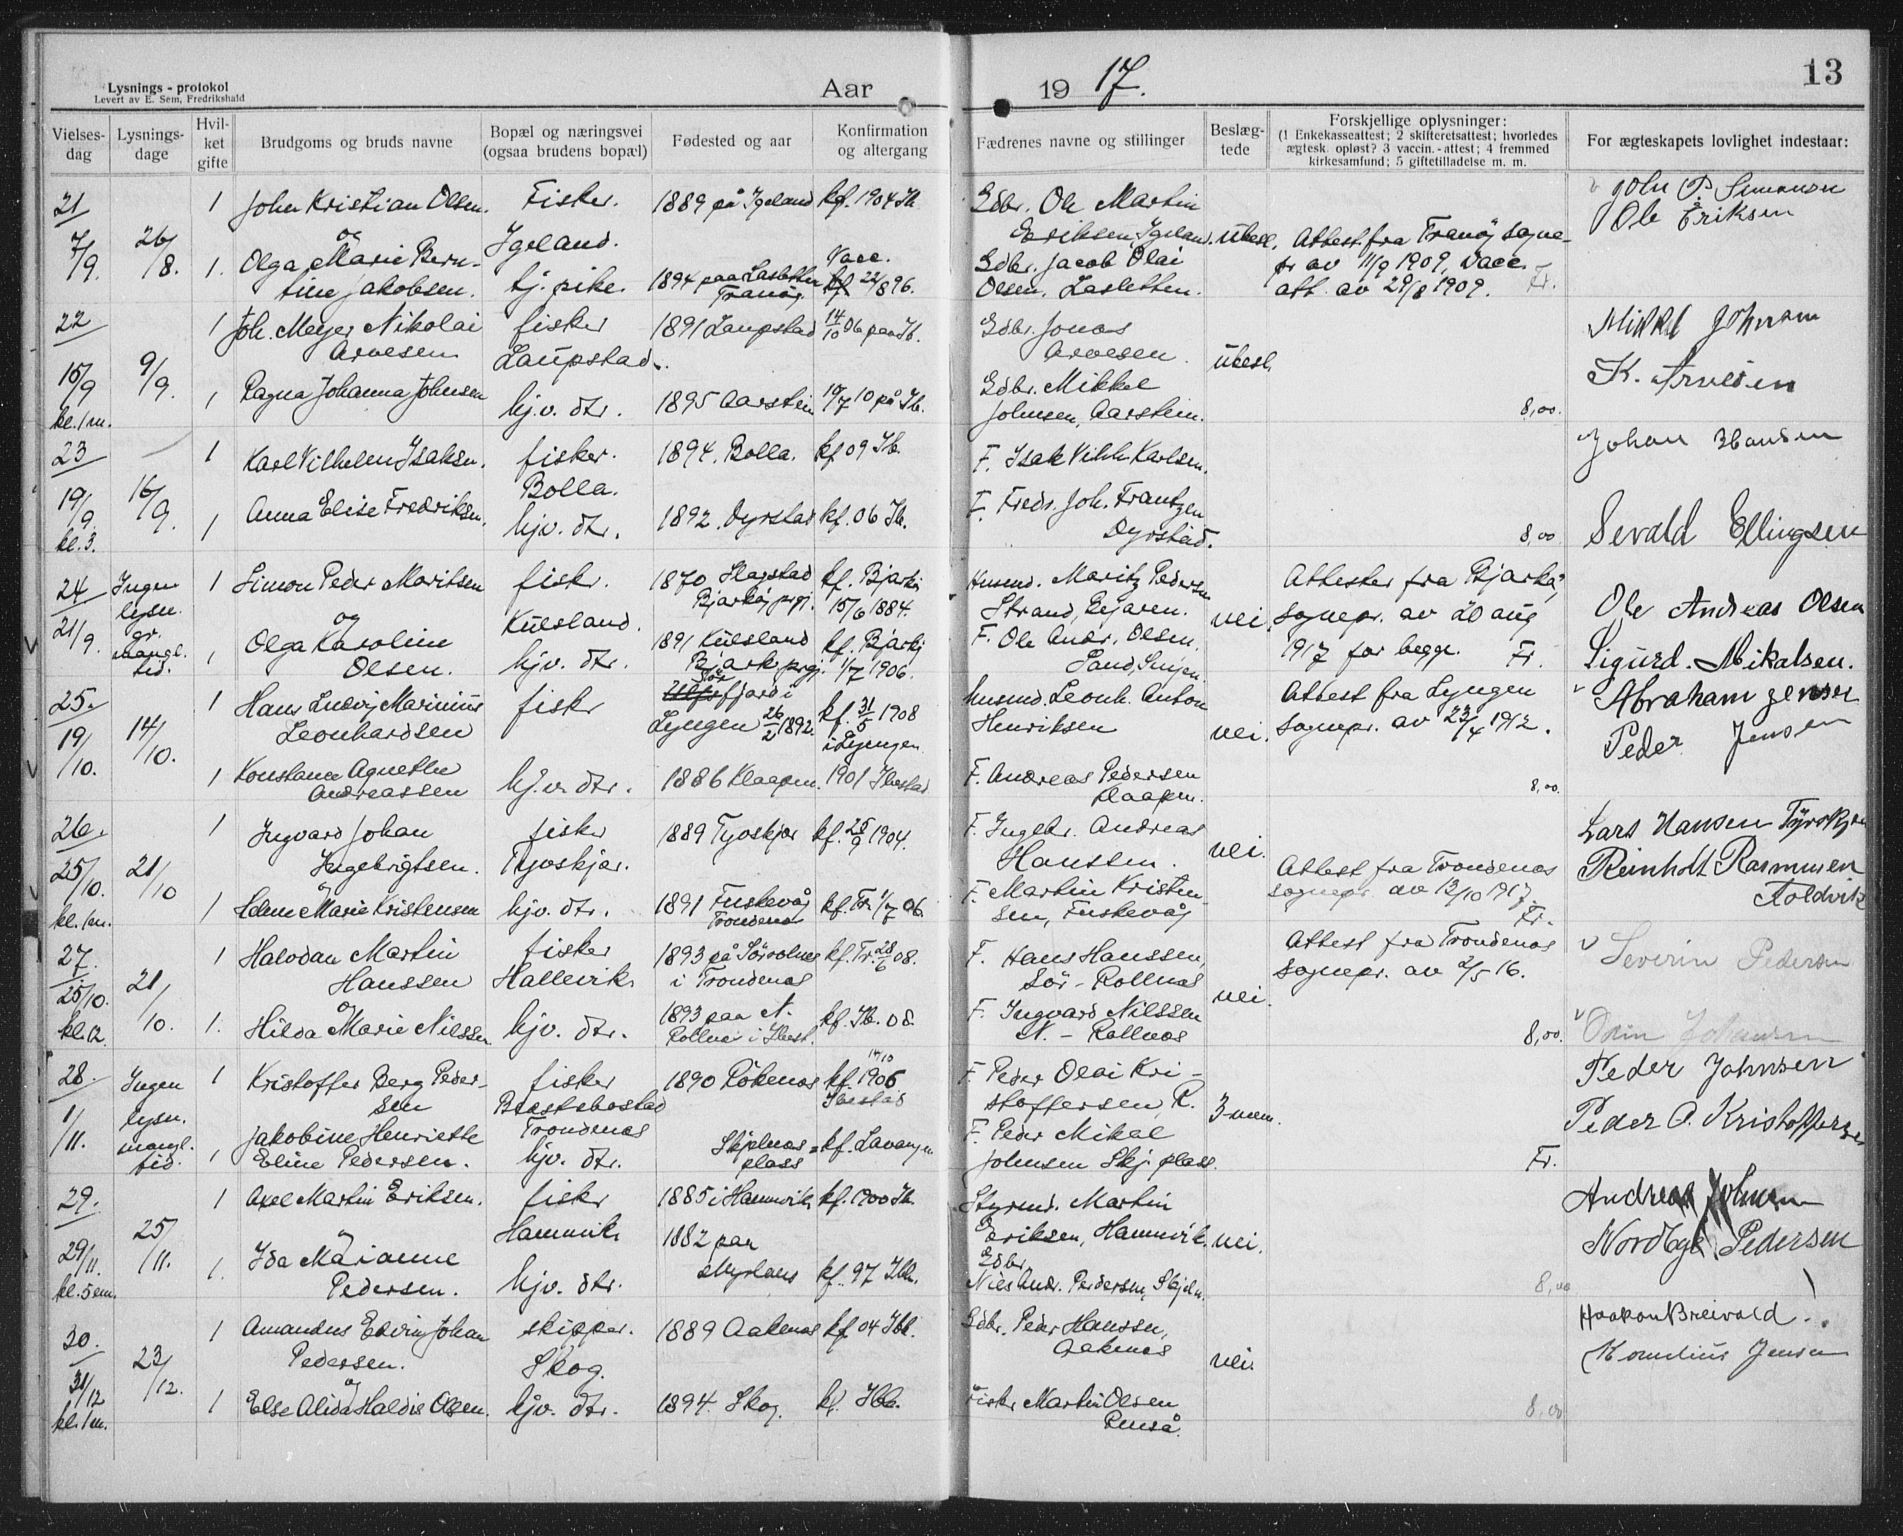 Lysnings - protokol
Levert av E. Sem, Fredrikshald
Aar
1917.
13
Vielses-dag
Lysnings-dage
Hvilket gifte
Brudgoms og bruds navne
Bopæl og næringsvei (ogsaa brudens bopæl)
Fødested og aar
Konfirmation og altergang
Fædrenes navne og stillinger
Beslægtede
Forskjellige oplysninger:
(1 Enkekasseattest; 2 skifteretsattest; hvorledes
ægtesk. opløst? 3 vaccin.-attest; 4 fremmed
kirkesamfund; 5 giftetilladelse m. m.
For ægteskapets lovlighet indestaar:
21
7/9.
26/8.
1 John Kristian Olsen. Fisker. 1889 på Igeland kf. 1904 Ib.
og
Igeland.
1. Olga Marie Bern-
tine Jakobsen. hj. pike. 1894 paa Lasletten
Tranöy
Vacc.
kf 22/8 96.
Gdbr. Ole Martin
Eriksen, Igeland. ubesl.
Gdbr. Jacob Olai
Olsen. Lasletten.
Attest fra Tranöy sogne-
pr av 11/9 1909, Vacc.
att. av 29/8 1909. Fr.
John P. Simonsen
Ole Eriksen
22
15/9
kl. 1 m.
9/9.
1 Joh. Meyer Nikolai
Arvesen
fisker
Laupstad.
1891 Laupstad 14/10 06 paa Ib.
1 Ragna Johanna Johnsen
hj. v. dtr. 1895 Aarstein 17/7 10 på Ib.
Gdbr. Jonas
Arvesen. ubesl.
Gdbr. Mikkel
Johnsen, Aarstein.
8,00.
Mikkel Johnsen
K. Arvesen
23
19/9
kl. 3.
16/9.
1 Karl Vilhelm Isaksen. fisker. 1894. Bolla. kf 09 Ib.
Bolla.
1 Anna Elise Fredriksen. hjv. dtr. 1892. Dyrstad kf. 06 Ib.
F. Isak Vilh. Karlsen.
F. Fredr. Joh. Frantzen
Dyrstad.
8,00
Johan Hansen
Sevald Ellingsen
24
21/9.
Ingen
lysn.
gr.
mangl.
tid.
1 Simon Peder Moritsen fiskr. 1870 Hagstad
Bjarköy prgj. kf. Bjarkö
15/6 1884.
og
Kulsland.
1 Olga Karoline
Olsen. hjv. dtr. 1891 Kulsland
Bjark. prgj. kf. Bjarkj
1/7 1906.
Husmd. Moritz Peders
Strand, nei.
F. Ole Andr. Olsen.
Sand, Senjen
Attester fra Bjarkö
sognepr. av 20 aug
1917 for begge. Fr.
Ole Andreas Olsen
Sigurd. Mikalsen.
25.
19/10.
14/10.
1 Hans Ludvig Marinius
Leonhardsen
fisker
Sör
fjord i
Lyngen 26/2 1892. kf. 31/5 1908
i Lyngen
1 Konstance Agnethe
Andreassen hj. v. dtr. 1886 Klaapen. 1901 Ibestad
Husmd. Leonh. Anton
Henriksen nei.
F. Andreas Pedersen
Klaapen.
Attest fra Lyngen
sognepr. av 23/4 1912.
8,00.
Abraham Jensen
Peder Jensen
26.
25/10.
kl. 1 m.
21/10
1 Ingvard Johan
Ingebrigtsen. fisker
Tyvskjær. 1889 Tyvskjær kf. 25/9 1904.
1 Helene Marie Kristensen hjv. dtr. 1891 Fuskevåg
Trondenes kf. Tr. 1/7 06.
F. Ingebr. Andreas
Hanssen. nei.
F. Martin Kristen-
sen, Fuskevåg
Attest fra Trondenes
sognepr. av 13/10 1917.
Fr.
Lars Hansen Tyvskjær
Reinholt Rasmusen
Foldvik
27.
25/10.
kl. 12.
21/10.
1 Halvdan Martin
Hanssen fisker
Hallevik 1893 på Sörrolnes
i Trondenes kf. Tr. 28/6 08.
1. Hilda Marie Nilssen. hjv. dtr. 1893 paa N.
Rollnes i Ibest. kf. Ib. 08.
F. Hans Hanssen,
Sör-Rollnes nei.
F. Ingvard Nilssen
N. - Rollnes
Attest fra Trondenes
sognepr. av 2/5 16.
8,00.
Severin Pedersen
28.
1/11.
Ingen
lysn.
mangl.
tid.
1 Kristoffer Berg Peder-
sen fisker
Trondenes 1890 Rökenes kf. 1905
14/10
Ibestad
1 Jakobine Henriette
Eline Pedersen. hjv. dtr. Skjelnes
plass kf. Lavangen
F. Peder Olai Kri-
stoffersen, R. 3-men.
F. Peder Mikal
Johnsen Skj. plass.
Fr.
Peder Johnsen
Peder O. Kristoffersen
29.
29/11.
kl. 5 em.
25/11.
1 Axel Martin Eriksen. fisker 1885 i Hamnvik kf. 1900 Ib.
Hamnvik
1. Ida Marianne
Pedersen. hjv. dtr. 1882 paa
kf. 97 Ibl.
Styrmd. Martin
Eriksen, Hamnvik. nei.
Gdbr.
Nils Andr. Pedersen, Skjeln.
8,00
Andreas Johnsen
Nordbye Pedersen
30.
31/12
kl. 1 m.
23/12.
1 Amandus Edvin Johan
Pedersen. skipper.
Skog. 1889 Aakenes kf 04 Ibl.
1 Else Alida Haldis Olsen. hjv. dtr. 1894. Skog. kf. Ibl.
Gdbr. Peder Hanssen,
Aakenes nei.
Fiskr Martin Olsen
Renså.
8,00
Haakon Breivold.
Kornelius Jensen